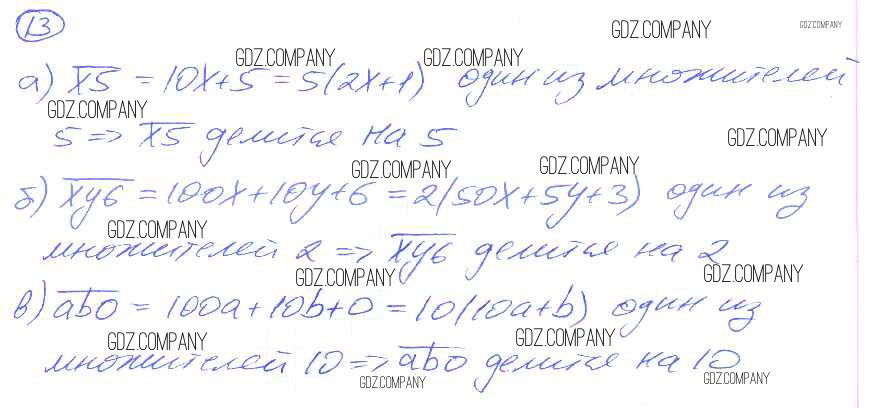 13
GDZ.COMPANY
GDZ.COMPANY
GDZ.COMPANY GDZ.COMPANY
а) x̅5̅ = 10x+5 = 5(2x+1) один из множителей
GDZ.COMPANY
5 => x̅5̅ делится на 5
GDZ.COMPANY
GDZ.COMPANY GDZ.COMPANY
б) x̅y̅6̅ = 100x+10y+6 = 2(50x+5y+3) один из
GDZ.COMPANY
множителей 2 => x̅y̅6̅ делится на 2
GDZ.COMPANY GDZ.COMPANY
в) a̅b̅0̅ = 100a+10b+0 = 10(10a+b) один из
GDZ.COMPANY GDZ.COMPANY
множителей 10 => a̅b̅0̅ делится на 10
GDZ.COMPANY GDZ.COMPANY